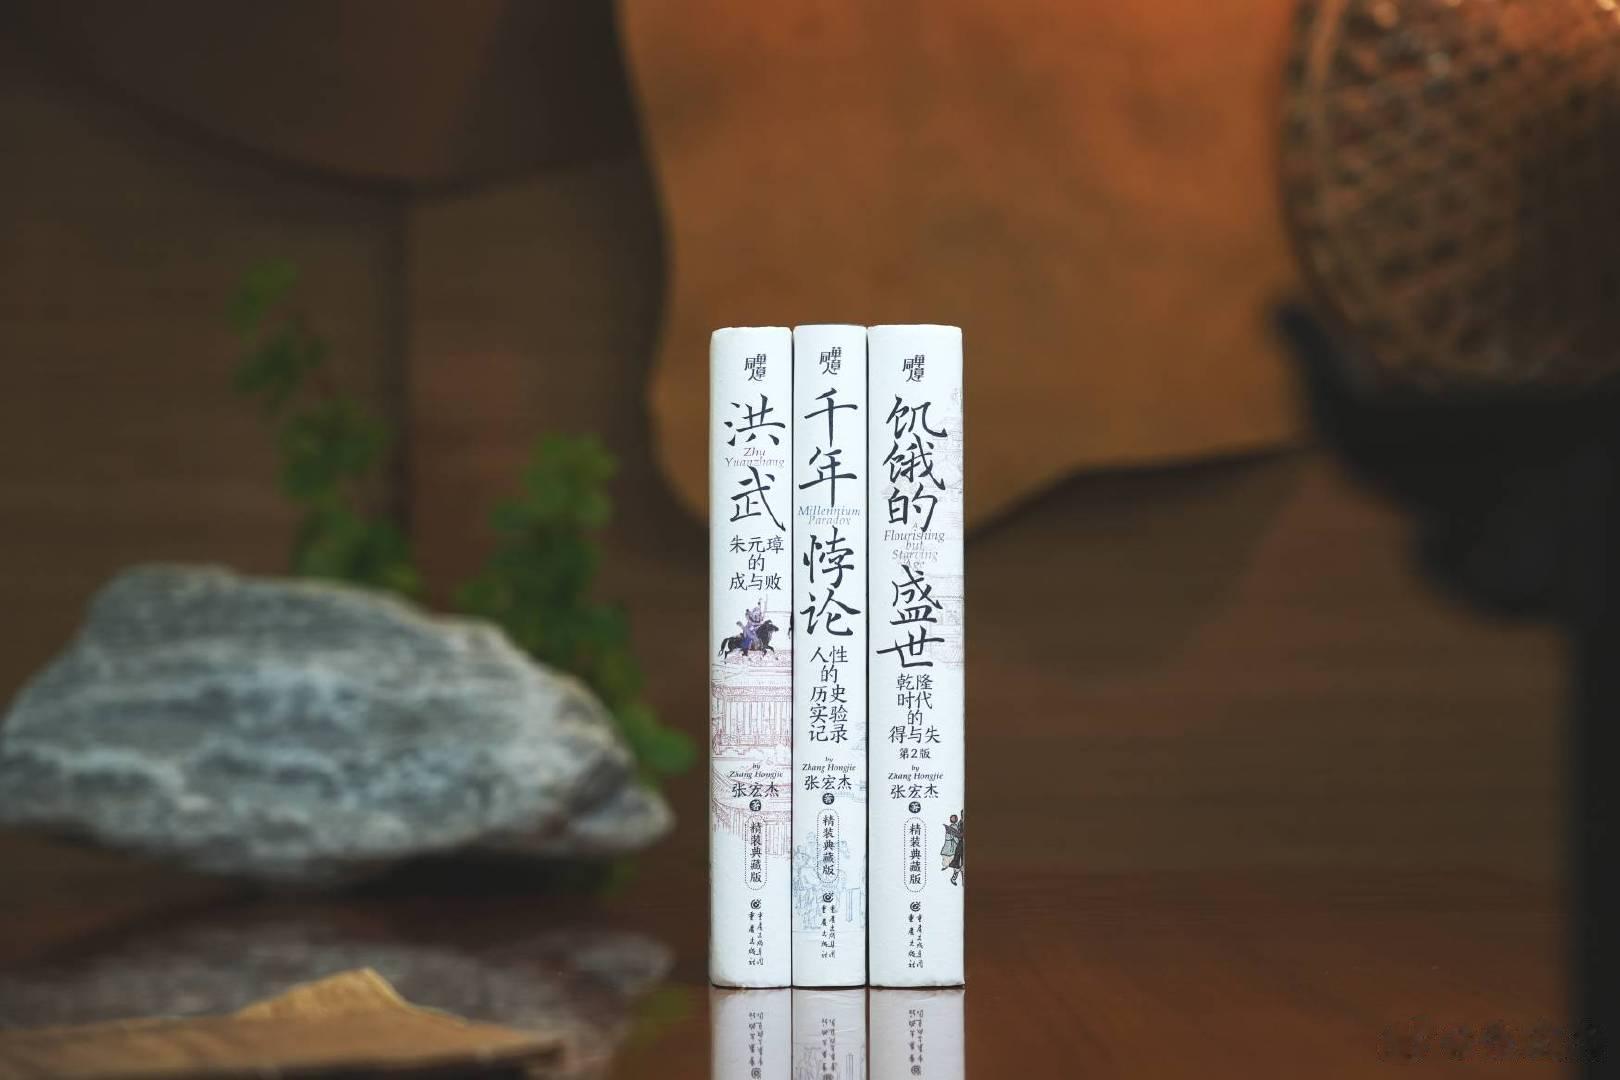 洪武
Zhu
Yuanzhang
朱元璋
的
成与败
by
Zhang Hongjie
张宏杰
著
精装典藏版
重庆出版集团
重庆出版社
千年悖论
Millennium
Paradox
人性
的
历史
实验
记录
by
Zhang Hongjie
张宏杰
著
精装典藏版
重庆出版集团
重庆出版社
饥饿的盛世
A
Flourishing
but
Starving
Age
乾隆
时代
的
得与失
第2版
by
Zhang Hongjie
张宏杰
著
精装典藏版
重庆出版集团
重庆出版社